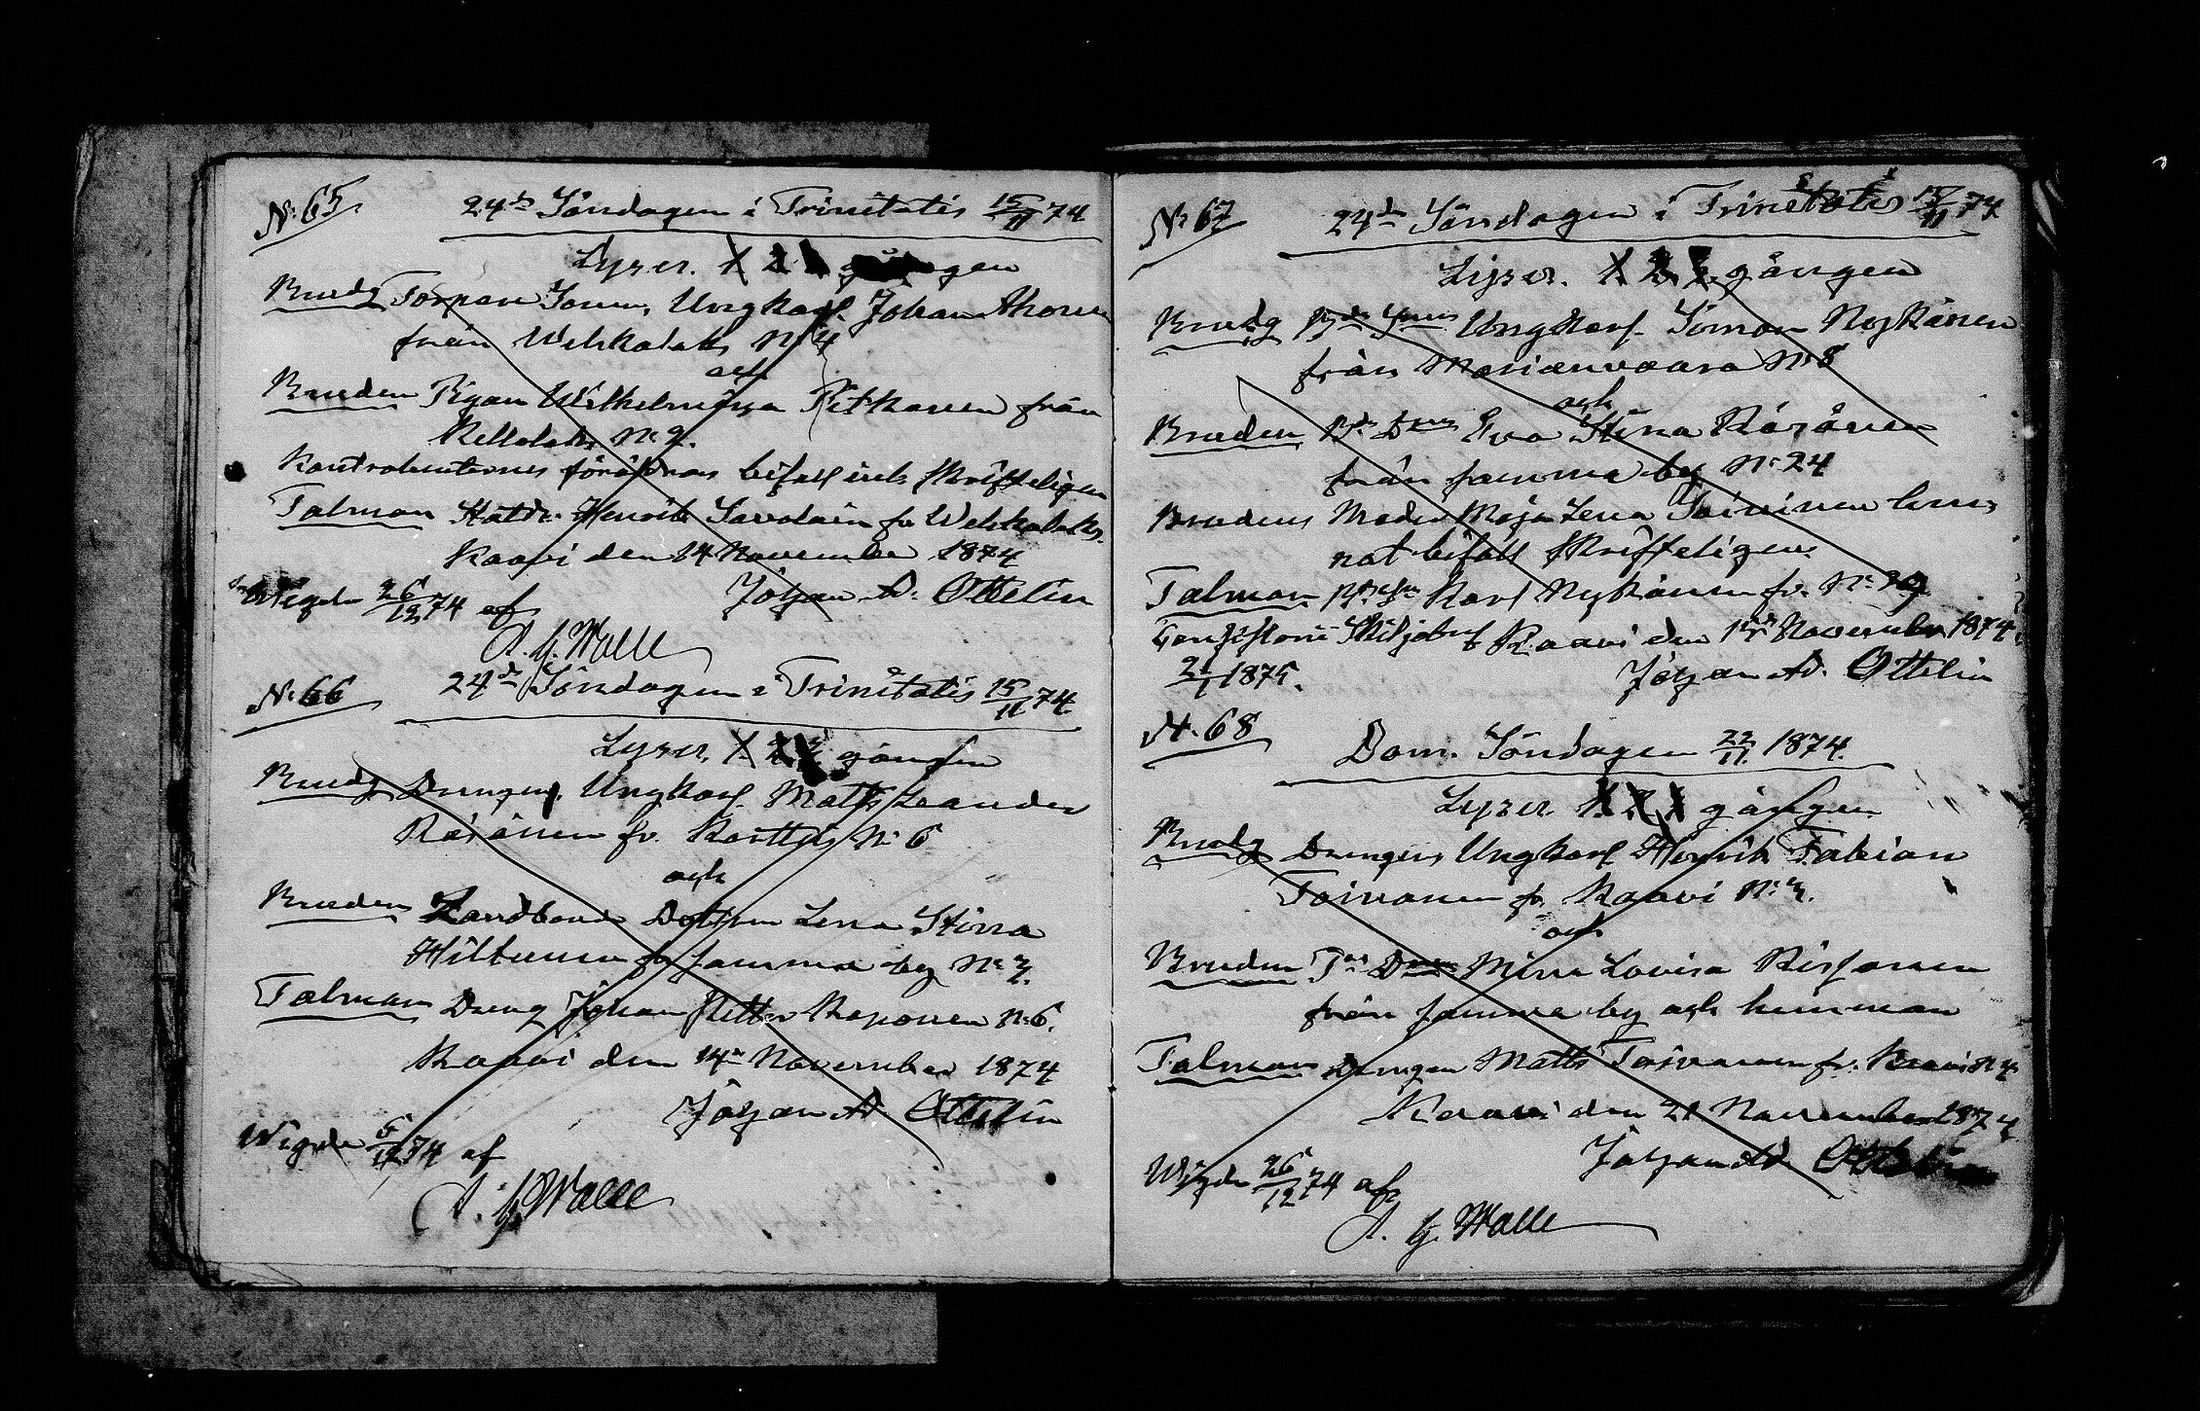 N:65
24de Söndagen i Trinitatis 15/11 74
Lyser. 1 2 gången
Brudg Torpare Sonen, Ungkarl Johan Ahonen
från Wehkalaks N:4
och
Bruden Pigan Wilhelmina Pitkänen från
N:2.
Kontrahenternes föräldrars bifall instr Skrifteligen
Talman Henrik Savolain fr Wehkalaks.
Kaavi den 14 November 1874
Johan A. Ottelin
Wigde 26/12 74 af
A. G. Walle
N:66
24de Söndagen i Trinitatis 15/11 74
Lyser. 1. 2 3 gången
Brudg Drengen, Ungkarl Matts Leander
Räsänen fr. Kortteis N:6
och
Bruden Landbonde Dottren Lena Stina
Hiltunen fr samma by N:7.
Talman Dreng Johan Petter Kaponen N:6.
Kaavi den 14de November 1874
Johan A Ottelin
Wigde 6/12 74 af
A. G. Walle
N:67
24de Söndagen i Trinitatis 15/11 74
Lyser. 1 2 3 gången
Brudg Bde Sonen Ungkarl Simon Nykänen
från Marianvaara N:8
och
Bruden Bde Dren Eva Stina Räsänen
från samma by N:24
Brudens Moder Maja Lena Toivinen lem,
nat bifall Skrifteligen.
Talman Karl Nykänen fr. N:29
Kaavi den 15de November 1874
1875.
Johan Ad. Ottelin
N:68
Dom. Söndagen 22/11 1874.
Lyser. 1 2 3 gången
Brudg Drengen, Ungkarl Henrik Fabian
Toivanen fr. Kaavi N:7.
och
Bruden Tas Dren Mina Lovisa Rissanen
från samma by och hemman
Talman Drengen Matts Toivanen fr. Kaavi N:4
Kaavi den 21 November 1874
Johan Ad. Ottelin
Wigde 26/12 74 af
A. G. Walle